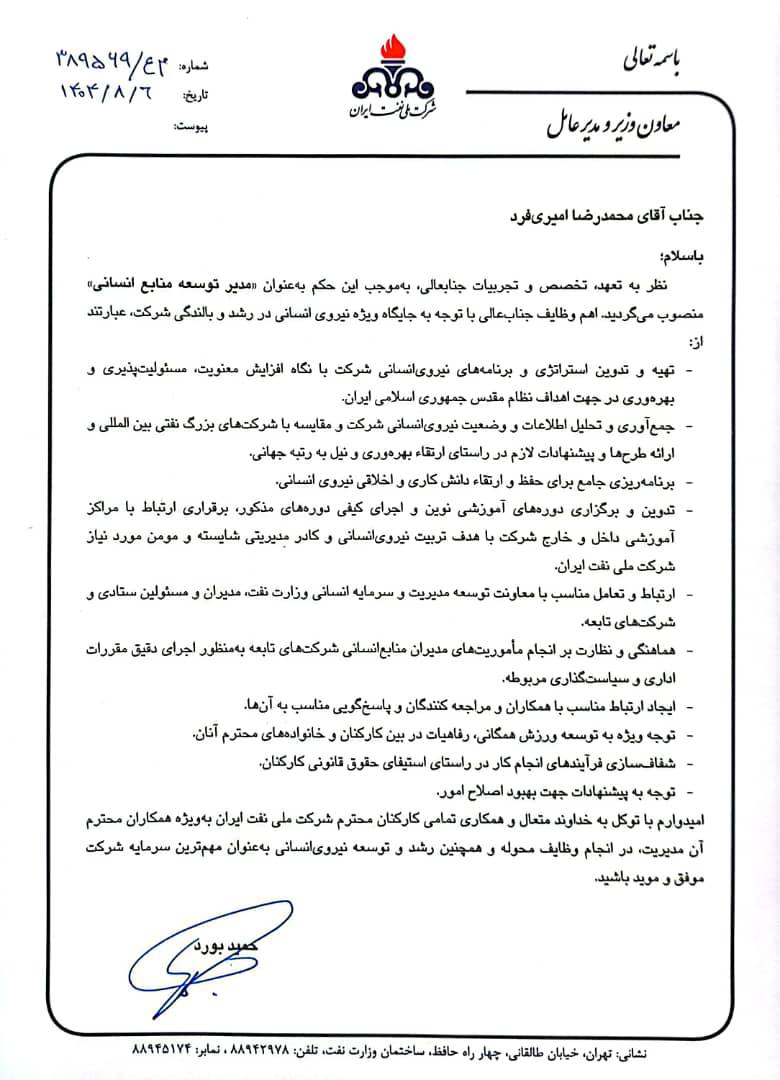 باسمه تعالی
معاون وزیر و مدیر عامل
شرکت ملی نفت ایران
شماره: م ع/۳۸۹۵۶۹
تاریخ: ۱۴۰۴/۸/۶
پیوست:
جناب آقای محمدرضا امیری‌فرد
باسلام؛
نظر به تعهد، تخصص و تجربیات جنابعالی، به‌موجب این حکم به‌عنوان «مدیر توسعه منابع انسانی»
منصوب می‌گردید. اهم وظایف جناب‌عالی با توجه به جایگاه ویژه نیروی انسانی در رشد و بالندگی شرکت، عبارتند
از:
- تهیه و تدوین استراتژی و برنامه‌های نیروی‌انسانی شرکت با نگاه افزایش معنویت، مسئولیت‌پذیری و
بهره‌وری در جهت اهداف نظام مقدس جمهوری اسلامی ایران.
- جمع‌آوری و تحلیل اطلاعات و وضعیت نیروی‌انسانی شرکت و مقایسه با شرکت‌های بزرگ نفتی بین المللی و
ارائه طرح‌ها و پیشنهادات لازم در راستای ارتقاء بهره‌وری و نیل به رتبه جهانی.
- برنامه‌ریزی جامع برای حفظ و ارتقاء دانش کاری و اخلاقی نیروی انسانی.
- تدوین و برگزاری دوره‌های آموزشی نوین و اجرای کیفی دوره‌های مذکور، برقراری ارتباط با مراکز
آموزشی داخل و خارج شرکت با هدف تربیت نیروی‌انسانی و کادر مدیریتی شایسته و مومن مورد نیاز
شرکت ملی نفت ایران.
- ارتباط و تعامل مناسب با معاونت توسعه مدیریت و سرمایه انسانی وزارت نفت، مدیران و مسئولین ستادی و
شرکت‌های تابعه.
- هماهنگی و نظارت بر انجام مأموریت‌های مدیران منابع‌انسانی شرکت‌های تابعه به‌منظور اجرای دقیق مقررات
اداری و سیاست‌گذاری مربوطه.
- ایجاد ارتباط مناسب با همکاران و مراجعه کنندگان و پاسخ‌گویی مناسب به آن‌ها.
- توجه ویژه به توسعه ورزش همگانی، رفاهیات در بین کارکنان و خانواده‌های محترم آنان.
- شفاف‌سازی فرآیندهای انجام کار در راستای استیفای حقوق قانونی کارکنان.
- توجه به پیشنهادات جهت بهبود اصلاح امور.
امیدوارم با توکل به خداوند متعال و همکاری تمامی کارکنان محترم شرکت ملی نفت ایران به‌ویژه همکاران محترم
آن مدیریت، در انجام وظایف محوله و همچنین رشد و توسعه نیروی‌انسانی به‌عنوان مهم‌ترین سرمایه شرکت
موفق و موید باشید.
حمید بورد
نشانی: تهران، خیابان طالقانی، چهار راه حافظ، ساختمان وزارت نفت، تلفن: ۸۸۹۴۲۹۷۸ ، نمابر: ۸۸۹۴۵۱۷۴